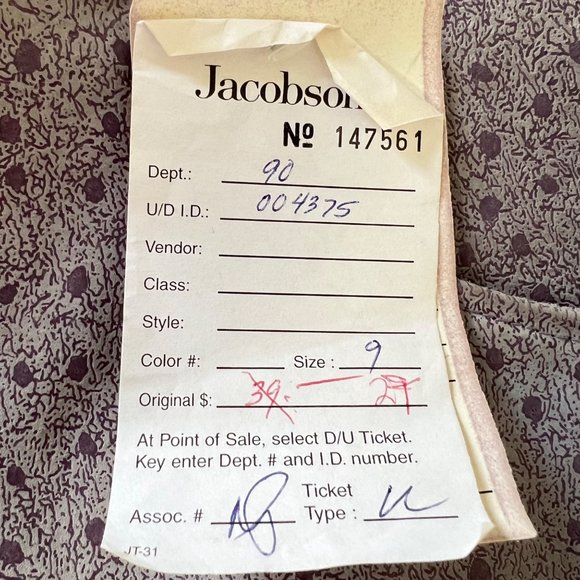 Jacobson
Nº 147561
Dept.: 90
U/D I.D.: 004375
Vendor:
Class:
Style:
Color #: Size: 9
Original $: 39.- 29
At Point of Sale, select D/U Ticket.
Key enter Dept. # and I.D. number.
Assoc. # Ticket
Type :
JT-31